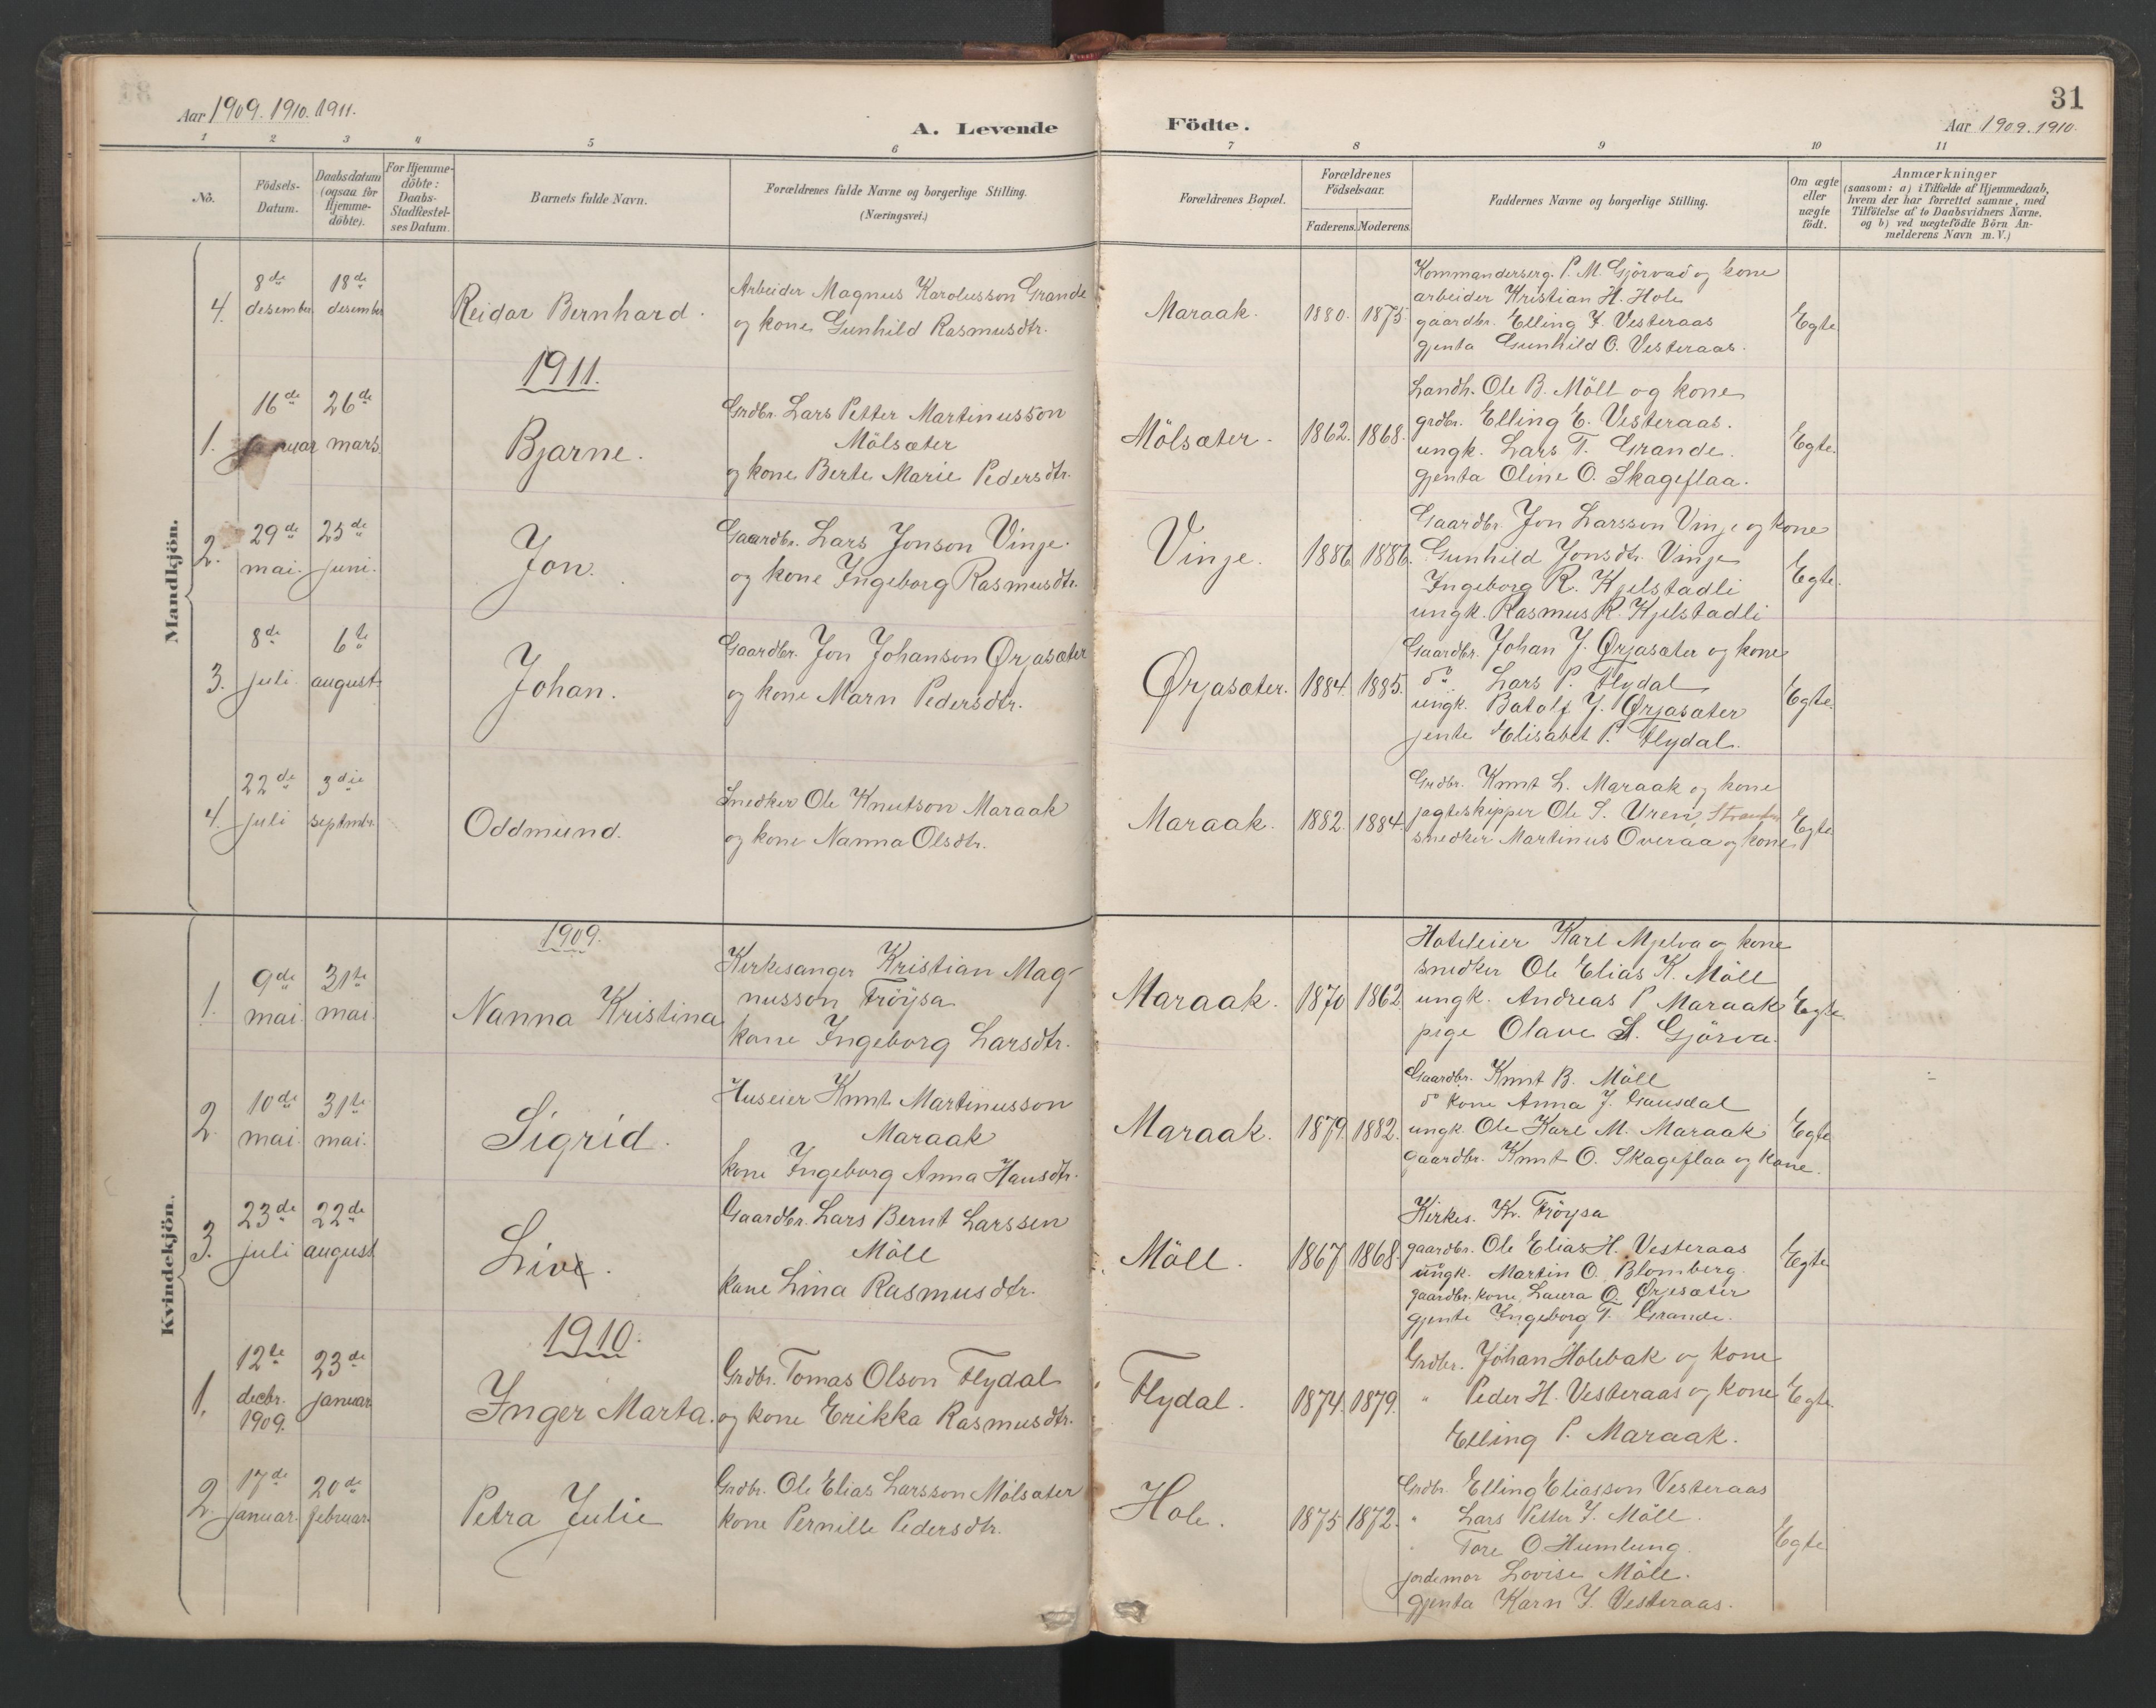 Aar 1909. 1910. 1911.
A. Levende
Födte.
31
Aar 1909. 1910.
1 2 3 4 5 6 7 8 9 10 11
No.
Födsels-
Datum.
Daabsdatum
(ogsaa for
Hjemme-
döbte).
For Hjemme-
döbte:
Daabs-
Stadfæstel-
ses Datum.
Barnets fulde Navn.
Forældrenes fulde Navne og borgerlige Stilling.
(Næringsvei.)
Forældrenes Bopæl.
Forældrenes
Födselsaar.
Faderens. Moderens.
Faddernes Navne og borgerlige Stilling.
Om ægte
eller
uægte
födt.
Anmærkninger
(saasom: a) i Tilfælde af Hjemmedaab,
hvem der har forrettet samme, med
Tilföielse af to Daabsvidners Navne,
og b) ved uægtefödte Börn An-
melderens Navn m. V.)
Mandkjön.
4.
8de
desember
18de
desember
Reidar Bernhard.
Arbeider Magnus Karolusson Grande
og kone Gunhild Rasmusdtr.
Maraak.
1880. 1875
Kommanderserg. P. M. Gjörvad og kone
arbeider Kristian H. Hole
gaardbr. Elling I. Vesteraas
gjenta Gunhild O. Vesteraas.
Egte
1911.
1.
16de
26de
mars.
Bjarne.
Grdbr. Lars Petter Martinusson
Mölsæter
og kone Berte Marie Pedersdtr.
Mölsæter.
1862. 1868.
Landh. Ole B. Möll og kone
grdbr. Elling E. Vesteraas.
ungk. Lars T. Grande.
gjenta Oline O. Skageflaa.
Egte.
2.
29de
mai.
25de
juni.
Jon.
Gaardbr. Lars Jonson Vinje.
og kone Ingeborg Rasmusdtr.
Vinje.
1886 1886.
Gaardbr. Jon Larsson Vinje og kone
Gunhild Jonsdtr. Vinje
Ingeborg R. Kjelstadli
ungk. Rasmus R. Kjelstadli
Egte.
3.
8de
juli.
6te
august.
Johan.
Gaardbr. Jon Johanson Ørjasæter
og kone Marn Pedersdtr.
Ørjasæter.
1884. 1885.
Gaardbr. Johan J. Ørjasæter og kone
do Lars P. Flydal
ungk. Batolf J. Ørjasæter
jente Elisabet P. Flydal.
Egte.
4.
22de
juli
3die
septmbr.
Oddmund.
Snedker Ole Knutson Maraak
og kone Nanna Olsdtr.
Maraak.
1882. 1884.
Grdbr. Knut L. Maraak og kone
jagteskipper Ole S. Uren,
snedker Martinus Overaa og kone
Egte
Kvindekjön.
1909.
1.
9de
mai.
31te
mai.
Nanna Kristina
Kirkesanger Kristian Mag-
nusson Fröysa
kone Ingeborg Larsdtr.
Maraak.
1870 1862
Hoteleier Karl Mjelva og kone
snedker Ole Elias K. Möll
ungk. Andreas P. Maraak
pige Olave S. Gjörva.
Egte.
2
10de
mai.
31te
mai.
Sigrid.
Huseier Knut Martinusson
Maraak
kone Ingeborg Anna Hansdtr.
Maraak.
1879. 1882.
Gaardbr. Knut B. Möll
do kone Anna J. Gausdal
ungk. Ole Karl M. Maraak
gaardbr. Knut O. Skageflaa og kone.
Egte
3.
23de
juli
22de
august
Live.
Gaardbr. Lars Bernt Larssen
Möll
kone Lina Rasmusdtr.
Möll.
1867 1868.
Kirkes. Kr. Fröysa
gaardbr. Ole Elias H. Vesteraas
ungk. Martin O. Blomberg.
gaardbr. kone, Laura O. Ørjesæter
gjente Ingeborg T. Grande.
Egte
1910.
1.
12te
decbr.
1909.
23de
januar
Inger Marta.
Grdbr. Tomas Olson Flydal
og kone Erikka Rasmusdtr.
Flydal.
1874. 1879.
Grdbr. Johan Holebak og kone
" Peder H. Vesteraas og kone
Elling P. Maraak.
Egte.
2.
17de
januar.
20de
februar.
Petra Julie
Grdbr. Ole Elias Larsson Mölsæter
kone Pernille Pedersdtr.
Hole.
1875 1872.
Grdbr. Elling Eliasson Vesteraas
" Lars Petter I. Möll.
" Tore O. Humlung.
jordemor Lovise Möll.
gjenta Karn I. Vesteraas.
Egte